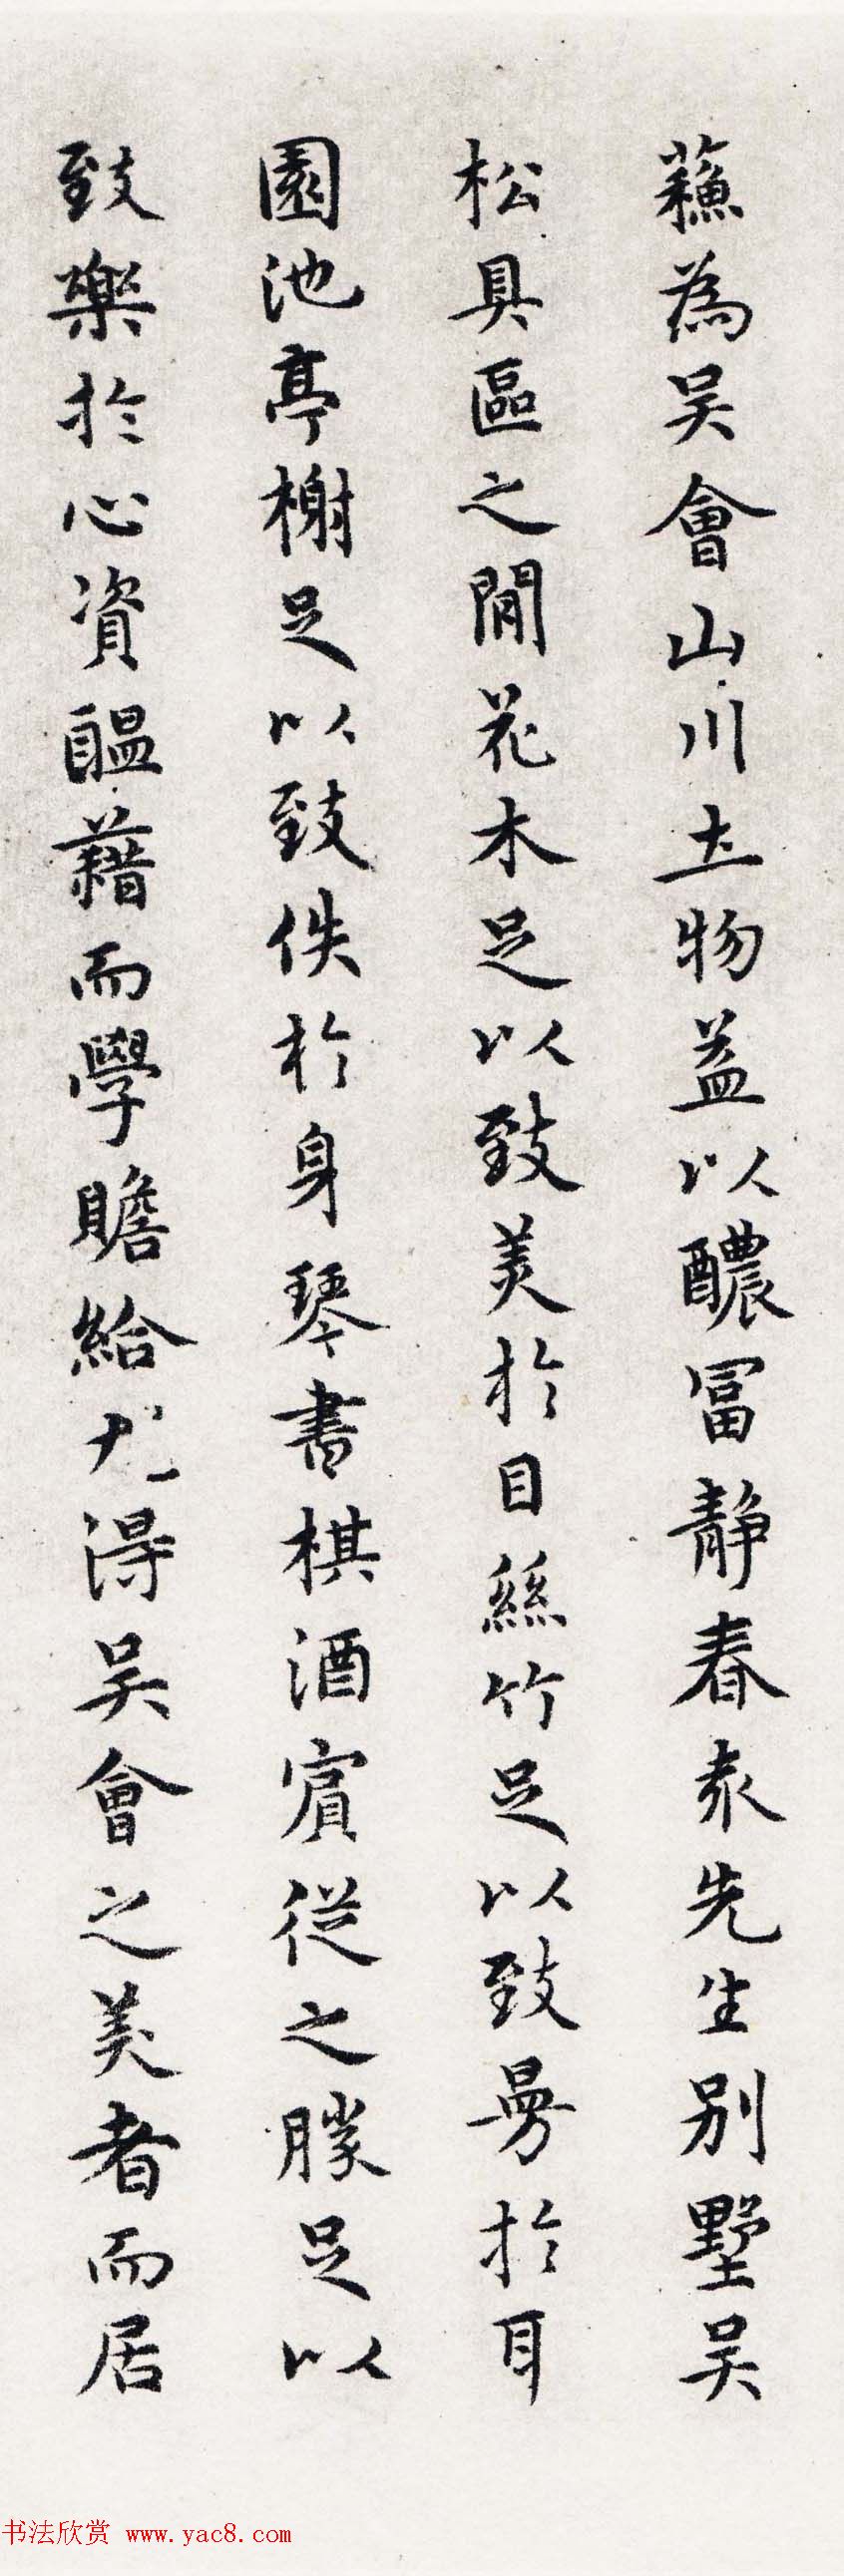 蘓為吴會山川土物益以醲冨静春袁先生别墅吴
松具區之閒花木足以致美於目絲竹足以致曼於耳
園池亭榭足以致佚於身琴書棋酒賔従之勝足以
致樂於心資醖藉而學贍給尤得吴會之美者而居
书法欣赏 www.yac8.com